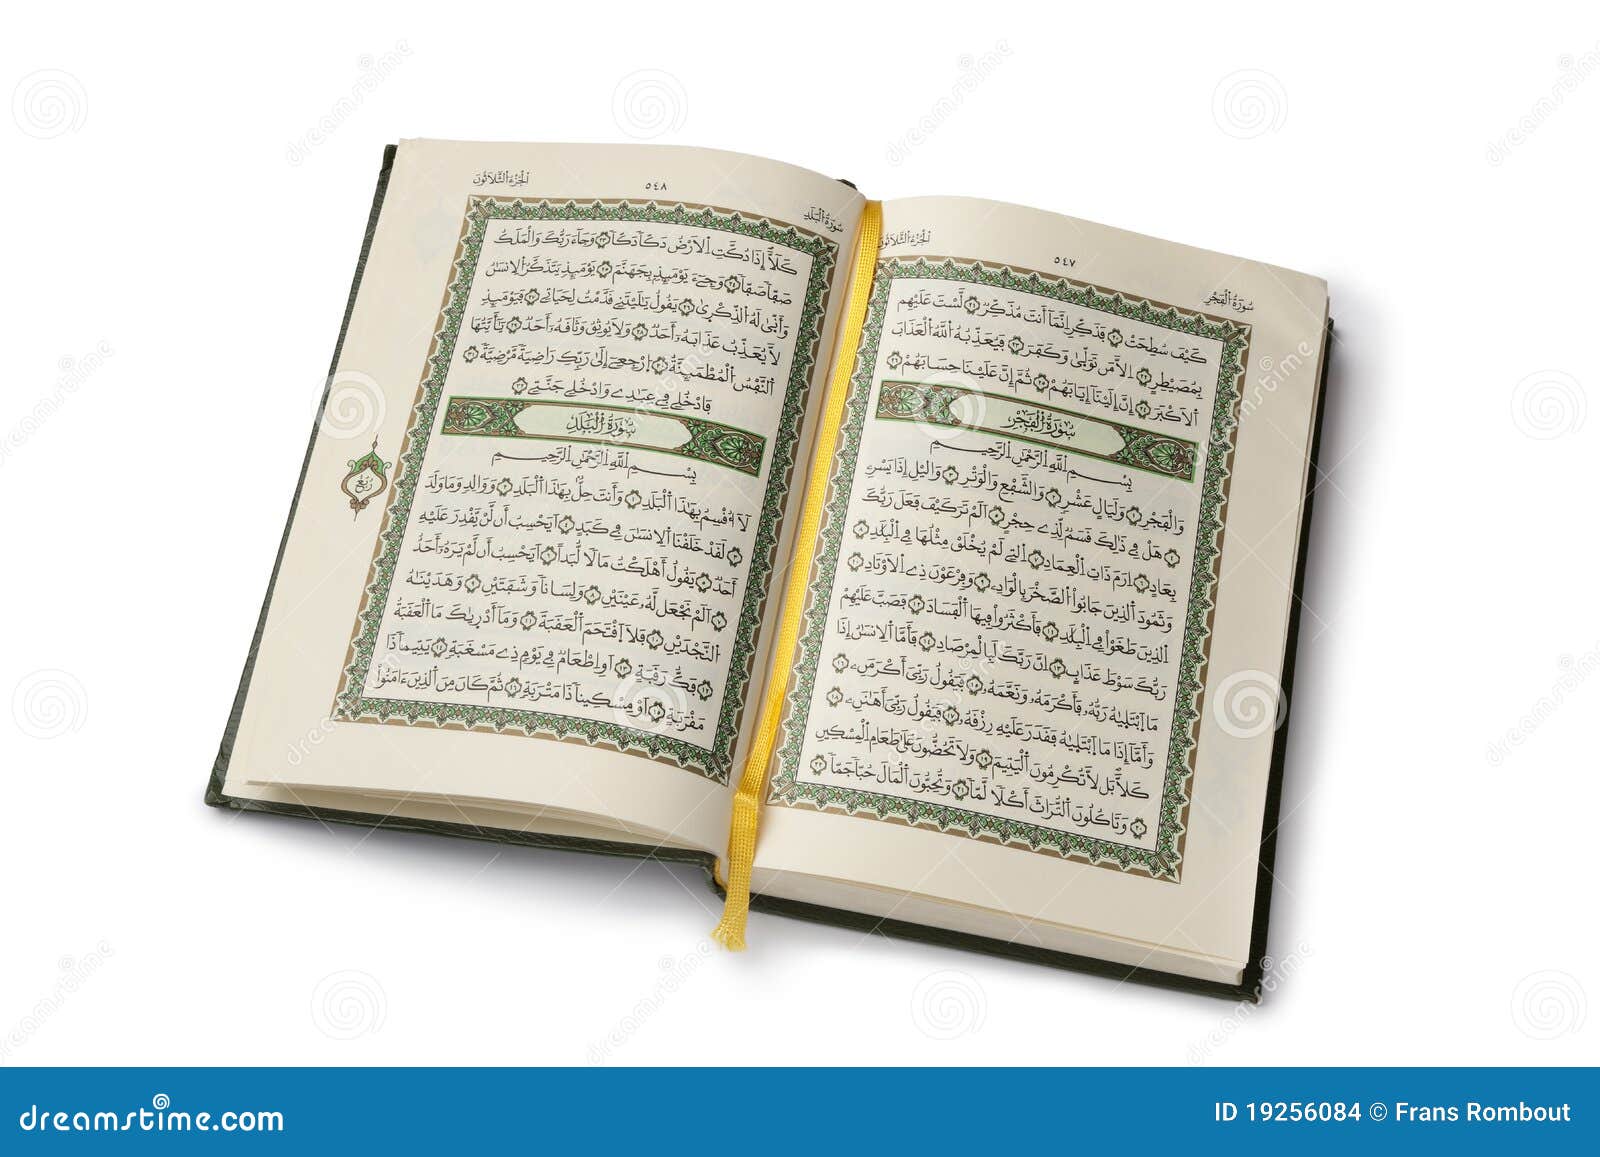 الجزء الثلاثون
٥٤٧
سورة الفجر
كَيْفَ سُطِحَتْ ٢٠ فَذَكِّرْ إِنَّمَا أَنتَ مُذَكِّرٌ ٢١ لَّسْتَ عَلَيْهِم
بِمُصَيْطِرٍ ٢٢ إِلَّا مَن تَوَلَّىٰ وَكَفَرَ ٢٣ فَيُعَذِّبُهُ ٱللَّهُ ٱلْعَذَابَ
ٱلْأَكْبَرَ ٢٤ إِنَّ إِلَيْنَا إِيَابَهُمْ ٢٥ ثُمَّ إِنَّ عَلَيْنَا حِسَابَهُم ٢٦
سُورَةُ ٱلْفَجْرِ
بِسْمِ ٱللَّهِ ٱلرَّحْمَٰنِ ٱلرَّحِيمِ
وَٱلْفَجْرِ ١ وَلَيَالٍ عَشْرٍ ٢ وَٱلشَّفْعِ وَٱلْوَتْرِ ٣ وَٱلَّيْلِ إِذَا يَسْرِ
٤ هَلْ فِي ذَٰلِكَ قَسَمٌ لِّذِي حِجْرٍ ٥ أَلَمْ تَرَ كَيْفَ فَعَلَ رَبُّكَ
بِعَادٍ ٦ إِرَمَ ذَاتِ ٱلْعِمَادِ ٧ ٱلَّتِي لَمْ يُخْلَقْ مِثْلُهَا فِي ٱلْبِلَٰدِ ٨
وَثَمُودَ ٱلَّذِينَ جَابُوا۟ ٱلصَّخْرَ بِٱلْوَادِ ٩ وَفِرْعَوْنَ ذِي ٱلْأَوْتَادِ ١٠
ٱلَّذِينَ طَغَوْا۟ فِي ٱلْبِلَٰدِ ١١ فَأَكْثَرُوا۟ فِيهَا ٱلْفَسَادَ ١٢ فَصَبَّ عَلَيْهِمْ
رَبُّكَ سَوْطَ عَذَابٍ ١٣ إِنَّ رَبَّكَ لَبِٱلْمِرْصَادِ ١٤ فَأَمَّا ٱلْإِنسَٰنُ إِذَا
مَا ٱبْتَلَىٰهُ رَبُّهُۥ فَأَكْرَمَهُۥ وَنَعَّمَهُۥ فَيَقُولُ رَبِّي أَكْرَمَنِ ١٥
وَأَمَّا إِذَا مَا ٱبْتَلَىٰهُ فَقَدَرَ عَلَيْهِ رِزْقَهُۥ فَيَقُولُ رَبِّي أَهَٰنَنِ ١٦
كَلَّا بَل لَّا تُكْرِمُونَ ٱلْيَتِيمَ ١٧ وَلَا تَحَٰضُّونَ عَلَىٰ طَعَامِ ٱلْمِسْكِينِ
١٨ وَتَأْكُلُونَ ٱلتُّرَاثَ أَكْلًا لَّمًّا ١٩ وَتُحِبُّونَ ٱلْمَالَ حُبًّا جَمًّا ٢٠
الجزء الثلاثون
٥٤٨
سورة البلد
كَلَّا إِذَا دُكَّتِ ٱلْأَرْضُ دَكًّا دَكًّا ٢١ وَجَاءَ رَبُّكَ وَٱلْمَلَكُ
صَفًّا صَفًّا ٢٢ وَجِا۟يءَ يَوْمَئِذٍ بِجَهَنَّمَ يَوْمَئِذٍ يَتَذَكَّرُ ٱلْإِنسَٰنُ
وَأَنَّىٰ لَهُ ٱلذِّكْرَىٰ ٢٣ يَقُولُ يَٰلَيْتَنِي قَدَّمْتُ لِحَيَاتِي ٢٤ فَيَوْمَئِذٍ
لَّا يُعَذِّبُ عَذَابَهُۥ أَحَدٌ ٢٥ وَلَا يُوثِقُ وَثَاقَهُۥ أَحَدٌ ٢٦ يَٰأَيَّتُهَا
ٱلنَّفْسُ ٱلْمُطْمَئِنَّةُ ٢٧ ٱرْجِعِي إِلَىٰ رَبِّكِ رَاضِيَةً مَّرْضِيَّةً ٢٨
فَٱدْخُلِي فِي عِبَٰدِي ٢٩ وَٱدْخُلِي جَنَّتِي ٣٠
سُورَةُ ٱلْبَلَدِ
بِسْمِ ٱللَّهِ ٱلرَّحْمَٰنِ ٱلرَّحِيمِ
لَا أُقْسِمُ بِهَٰذَا ٱلْبَلَدِ ١ وَأَنتَ حِلٌّ بِهَٰذَا ٱلْبَلَدِ ٢ وَوَالِدٍ وَمَا وَلَدَ
٣ لَقَدْ خَلَقْنَا ٱلْإِنسَٰنَ فِي كَبَدٍ ٤ أَيَحْسَبُ أَن لَّن يَقْدِرَ عَلَيْهِ
أَحَدٌ ٥ يَقُولُ أَهْلَكْتُ مَالًا لُّبَدًا ٦ أَيَحْسَبُ أَن لَّمْ يَرَهُۥ أَحَدٌ
٧ أَلَمْ نَجْعَل لَّهُۥ عَيْنَيْنِ ٨ وَلِسَانًا وَشَفَتَيْنِ ٩ وَهَدَيْنَٰهُ
ٱلنَّجْدَيْنِ ١٠ فَلَا ٱقْتَحَمَ ٱلْعَقَبَةَ ١١ وَمَا أَدْرَىٰكَ مَا ٱلْعَقَبَةُ
١٢ فَكُّ رَقَبَةٍ ١٣ أَوْ إِطْعَٰمٌ فِي يَوْمٍ ذِي مَسْغَبَةٍ ١٤ يَتِيمًا ذَا
مَقْرَبَةٍ ١٥ أَوْ مِسْكِينًا ذَا مَتْرَبَةٍ ١٦ ثُمَّ كَانَ مِنَ ٱلَّذِينَ ءَامَنُوا۟
ربع
dreamstime.com
ID 19256084 © Frans Rombout